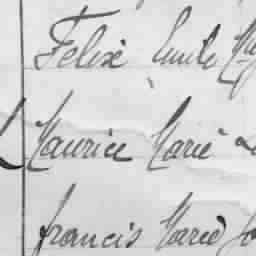 Felix Emile
Maurice Marie
francis Marie